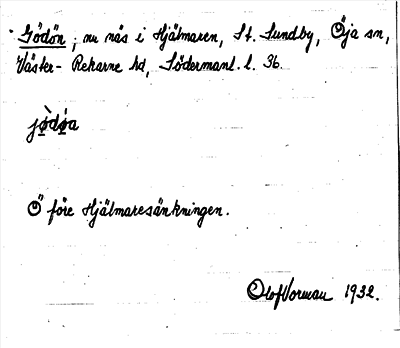 Gödön; nu näs i Hjälmaren, St. Sundby, Öja sn,
Väster-Rekarne hd, Södermanl. l. 36.
jø̀dǿa
Ö före Hjälmaresänkningen.
Olof Vorman 1932.